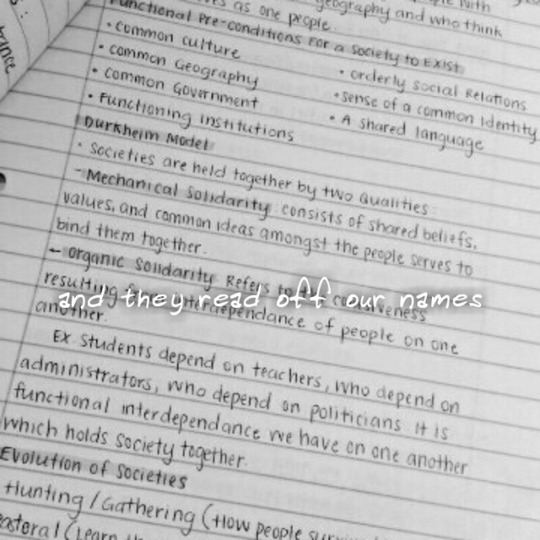 es as one people. geography and who think
Functional Pre-conditions for a society to Exist
• common culture
• common Geography
• common Government
• Functioning institutions
• orderly social Relations
• sense of a common identity
• A shared language
Durkheim Model
• Societies are held together by two qualities
- Mechanical solidarity: consists of shared beliefs,
values, and common ideas amongst the people serves to
bind them together.
- organic solidarity Refers to
and they read off our names
resulting interdependance of people on one
another.
Ex. students depend on teachers, who depend on
administrators, who depend on politicians. It is
functional interdependance we have on one another
which holds society together.
Evolution of societies
Hunting/Gathering (How people